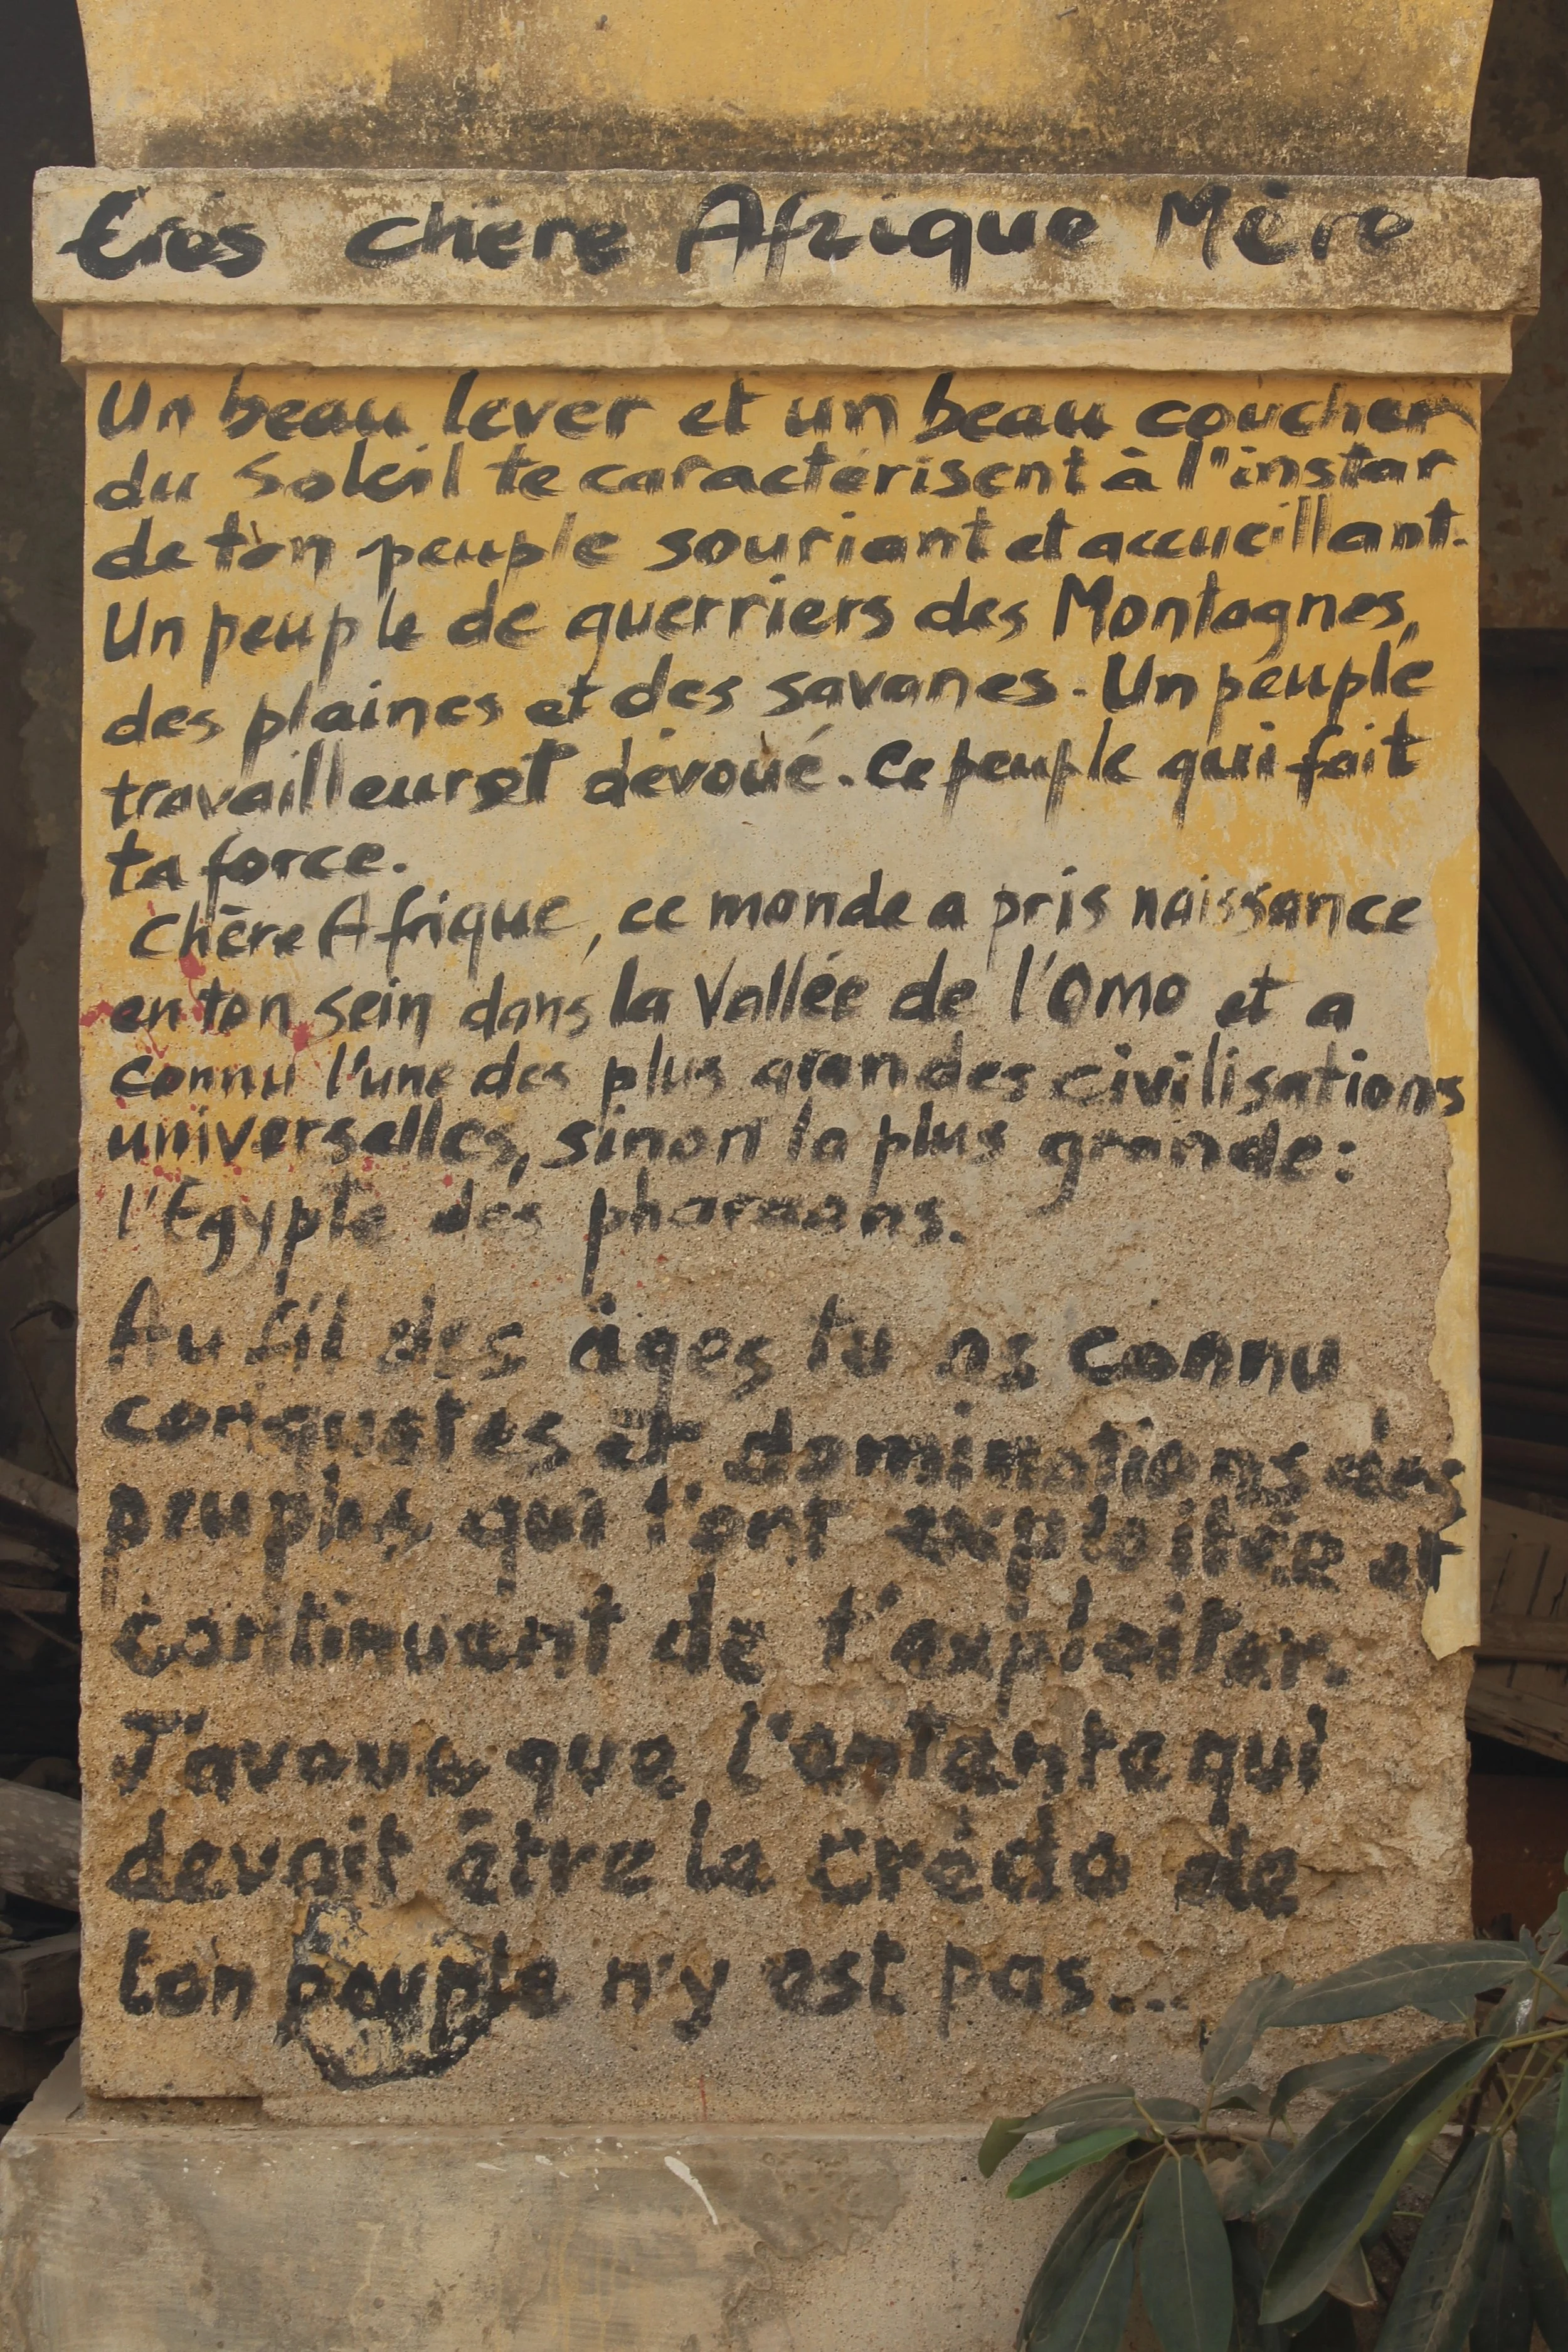 Très chère Afrique Mère
Un beau lever et un beau coucher
du soleil te caractérisent à l'instar
de ton peuple souriant et accueillant.
Un peuple de guerriers des Montagnes,
des plaines et des savanes. Un peuple
travailleur et dévoué. Ce peuple qui fait
ta force.
Chère Afrique, ce monde a pris naissance
en ton sein dans la Vallée de l'Omo et a
connu l'une des plus grandes civilisations
universelles, sinon la plus grande :
l'Egypte des pharaons.
Au fil des âges tu as connu
conquêtes et dominations des
peuples qui t'ont exploitée et
continuent de t'exploiter.
J'avoue que l'entente qui
devait être le crédo de
ton peuple n'y est pas...